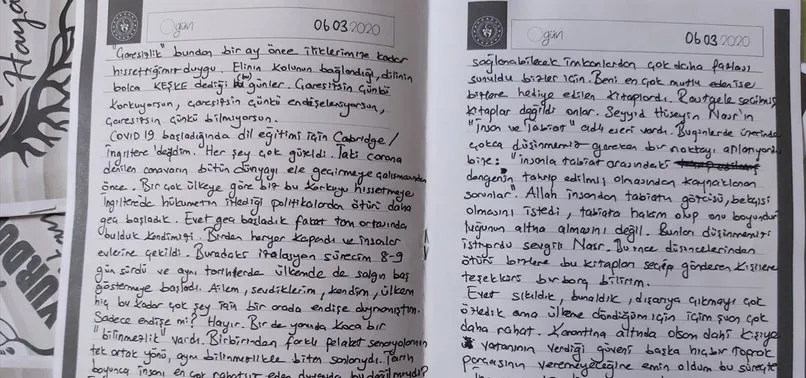 Hayâ
YURDU
gün
06 03 2020
"Çaresizlik" bundan bir ay önce iliklerimize kadar
hissettiğimiz duygu. Elinin kolunun bağlandığı, dilinin
bolca KEŞKE dediği bir günler. Çaresizsin çünkü
korkuyorsun, çaresizsin çünkü endişeleniyorsun,
çaresizsin çünkü bilmiyorsun.
COVID 19 başladığında dil eğitimi için Cabridge/
İngiltere'deydim. Her şey çok güzeldi. Taki corona
denilen canavarın bütün dünyayı ele geçirmeye çalışmasından
önce. Bir çok ülkeye göre biz bu korkuyu hissetmeye
İngilterede hükumetin izlediği politikalardan ötürü daha
geç başladık. Evet geç başladık fakat tam ortasında
bulduk kendimizi. Birden heryer kapandı ve insanlar
evlerine çekildi. Buradaki izalasyon sürecim 8-9
gün sürdü ve aynı tarihlerde ülkemde de salgın baş
göstermeye başladı. Ailem, sevdiklerim, kendim, ülkem
hiç bu kadar çok şey için bir arada endişe duymamıştım.
Sadece endişe mi? Hayır. Bir de yanında koca bir
"bilinmezlik" vardı. Birbirinden farklı felaket senaryolarının
tek ortak yönü, aynı bilinmezlikle biten sonlarıydı. Tarih
boyunca insanı en çok rahatsız eden duyguda bu değilmiydi?
gün
06 03 2020
sağlanabilecek imkanlardan çok daha fazlası
sunuldu bizler için. Beni en çok mutlu edense
bizlere hediye edilen kitaplardı. Rastgele seçilmiş
kitaplar değildi onlar. Seyyid Hüseyin Nasr'ın
"İnsan ve Tabiat" adlı eseri vardı. Bugünlerde üzerinde
çokca düşünmemiz gereken bir noktayı anlatıyordu
bize: "insanla tabiat arasındaki
dengenin tahrip edilmiş olmasından kaynaklanan
sorunlar". Allah insandan tabiatın gözcüsü, bekçisi
olmasını istedi, tabiata hakim olup onu boyundu
ruğunun altına almasını değil. Bunları düşünmemizi
istiyordu sevgili Nasr. Bu ince düşüncelerinden
ötürü bizlere bu kitapları seçip gönderen kişilere
teşekkürü bir borç bilirim.
Evet sıkıldık, bunaldık, dışarıya çıkmayı çok
özledik ama ülkeme döndüğüm için içim şuan çok
daha rahat. Karantina altında olsan dahi kişiye
vatanının verdiği güveni başka hiçbir toprak
parçasının veremeyeceğine emin oldum bu süreçte